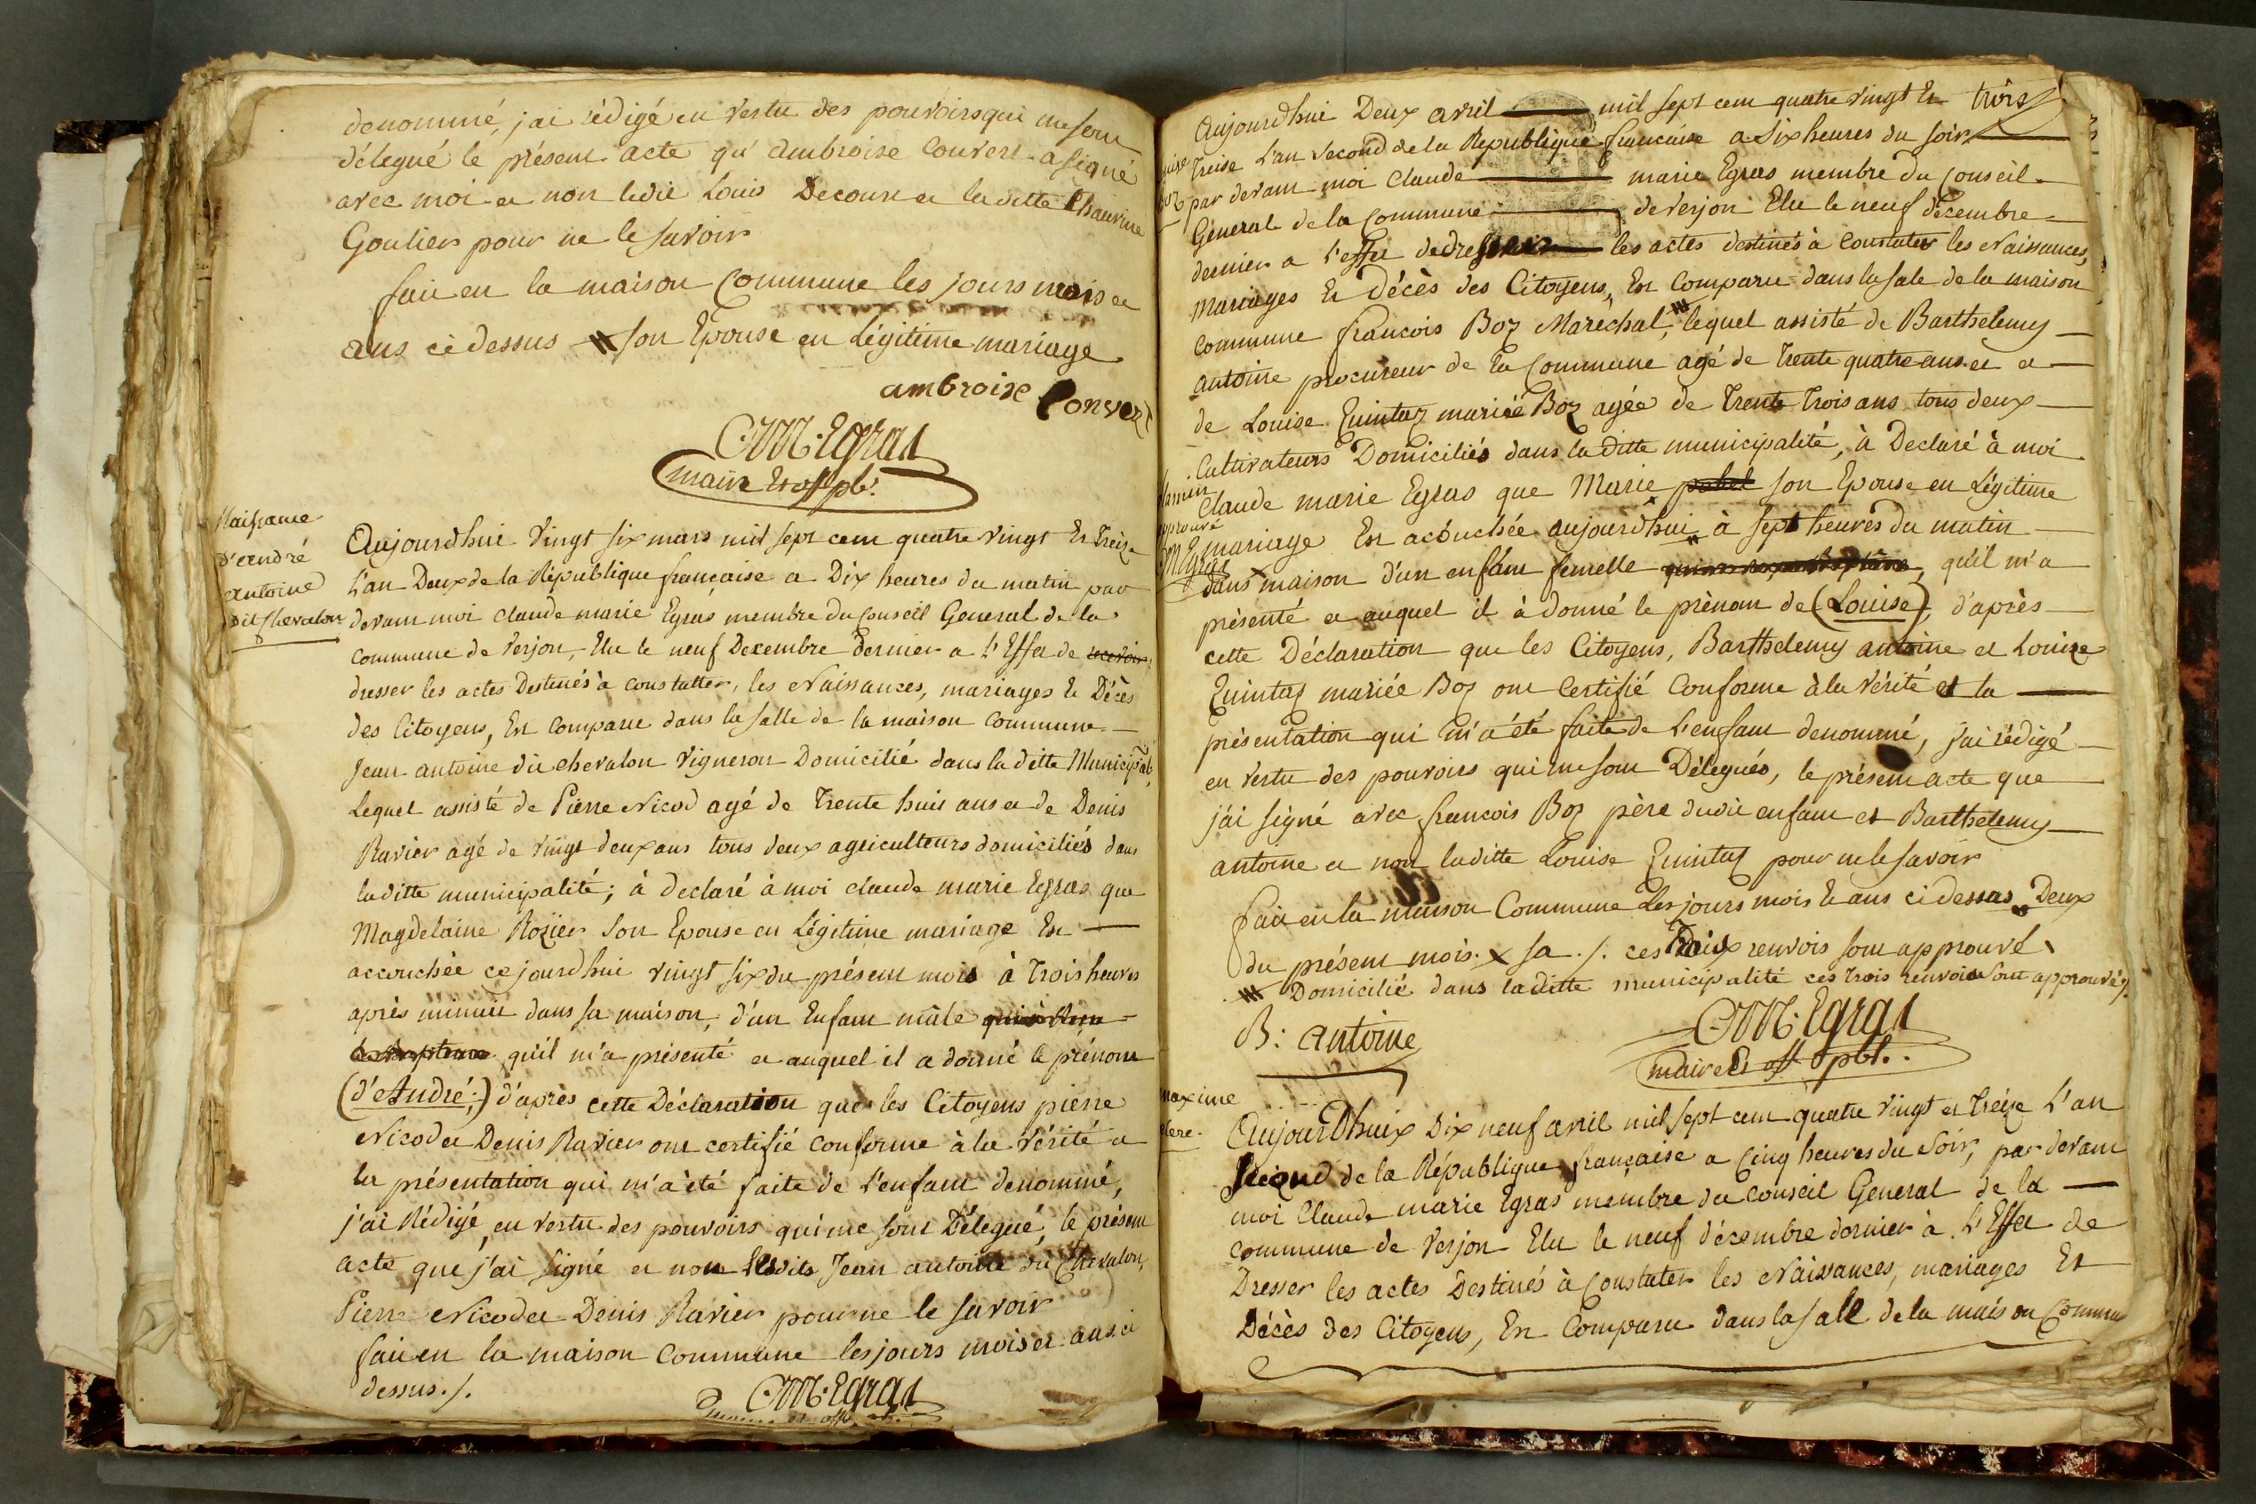 denommé, j'ai rédigé en vertu des pouvoirs qui me sont
délegué le présent acte qu'ambroise Convert a signé
avec moi et non ledit Louis Decour et la ditte
Goutier pour ne le savoir
fait en la maison Commune les jours mois et
ans ci dessus son Epouse en légitime mariage
ambroise Convert
C.M. Egras
maire Et off pb.
Naissance
D'andré
antoine
dit Chevalon
Aujourdhui vingt six mars mil sept cent quatre vingt Et Treize
L'an Deux de la République française a Dix heures du matin par
devant moi claude marie Egras membre du Conseil General de la
commune de Verjon, Elu le neuf Decembre Dernier a L'Effet de recevoir
dresser les actes Destinés à constatter, les Naissances, mariages Et Décès
des Citoyens, Est comparu dans la salle de la maison commune
Jean antoine dit chevalon vigneron Domicilié dans la ditte Municipal,
Lequel assisté de Pierre Nicod agé de Trente huit ans et de Denis
Ravier agé de vingt deux ans tous deux agriculteurs domiciliés dans
laditte municipalité; à declaré à moi claude marie Egras que
Magdelaine Rozier son Epouse en Légitime mariage Est
accouchée ce jourd'hui vingt six du présent mois à Trois heures
après minuit dans sa maison, d'un Enfant mâle
qu'il m'a présenté et auquel il a donné le prénom
(d'André;) d'après cette Déclaration que les Citoyens pierre
Nicod et Denis Ravier ont certifié conforme à la vérité et
la présentation qui m'a été faite de l'enfant denommé,
j'ai Rédigé, en vertu des pouvoirs qui me sont Délegué, le présent
acte que j'ai signé et non lesdits Jean antoine dit Chevalon,
Pierre Nicod et Denis Ravier pour ne le savoir
fait en la maison Commune les jours mois et ans ci
dessus ./.
C.M. Egras
Aujourdhui Deux avril mil sept cent quatre vingt Et trois
Treise L'an second de la Republique francaise a Six heures du soir
par devant moi Claude marie Egras membre du Conseil
Géneral de la Commune de Verjon Elu le neuf décembre
dernier a l'effet de dresser les actes destinés à constater les Naissances,
mariages Et Décès des Citoyens, Est comparu dans la sale de la maison
commune francois Boz Maréchal, lequel assisté de Barthelemy
antoine procureur de la Commune agé de Trente quatre ans et
de Louise Quintaz mariée Boz agée de Trente Trois ans tous deux
Cultivateurs Domiciliés dans la ditte municipalité, à Declaré à moi
Claude marie Egras que Marie son Epouse en Légitime
mariage Est acóuchée aujourdhui à sept heures du matin
dans maison d'un enfant femelle qu'il m'a
présenté et auquel il à donné le prénom de (Louise), d'après
cette Déclaration que les Citoyens, Barthelemy antoine et Louise
Quintaz mariée Boz ont Certifié Conforme à la vérité et la
présentation qui m'a été faite de l'enfant denommé, j'ai rédigé
en vertu des pouvoirs qui me sont Délegués, le présent acte que
j'ai signé avec francois Boz père dudit enfant et Barthelemy
antoine et non laditte Louise Quintaz pour ne le savoir
fait en la maison Commune Les jours mois Et ans ci dessus Deux
du présent mois. x sa ./. ces renvois sont approuvé
Domicilié dans laditte municipalité ces trois renvois sont approuvés
B: antoine
C.M. Egras
maire Et off pbl.
maxime
Aujourdhuix Dix neuf avril mil sept cent quatre vingt et treize L'an
second de la République française a Cinq heures du soir, par devant
moi Claude marie Egras membre du conseil General de la
commune de Verjon Elu le neuf décembre dernier à L'Effet de
Dresser les actes Destinés à Constater les Naissances, mariages Et
Décès des Citoyens, Est Comparu dans la sale de la maison Commu